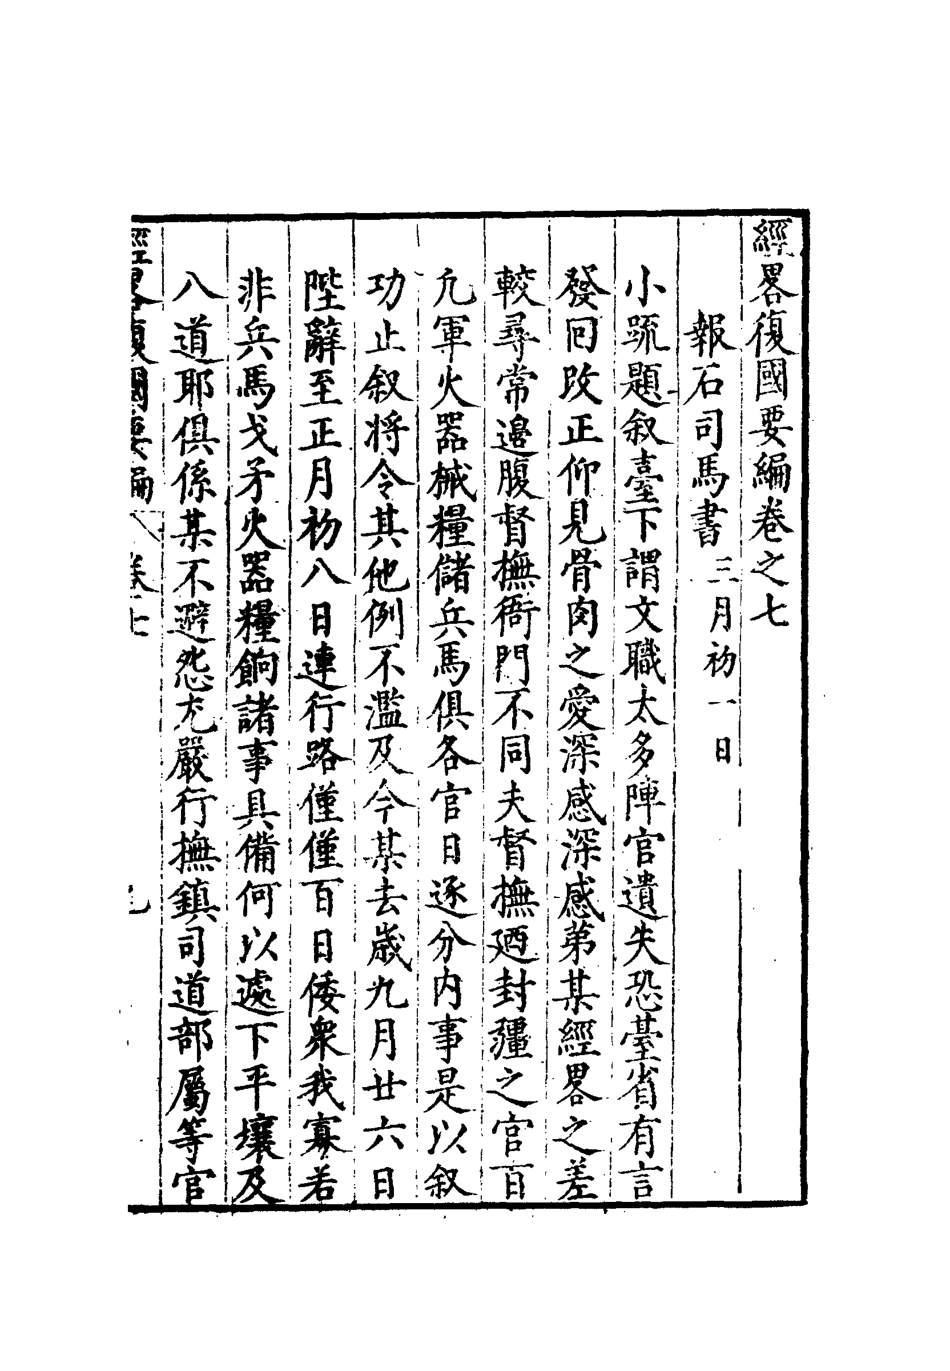 經畧復國要編卷之七
報石司馬書三月初一日
小䟽題叙臺下謂文職太多陣官遺失恐臺省有言
發囘改正仰見骨肉之愛深感深感弟某經畧之差
較尋常邉腹督撫衙門不同夫督撫廼封疆之官百
凢軍火器械糧儲兵馬俱各官日逐分内事是以叙
功止叙將令其他例不濫及今某去歲九月廿六日
陛辭至正月初八日連行路僅僅百日倭衆我寡若
非兵馬戈矛火器糧餉諸事具備何以處下平壤及
八道耶俱係某不避怨尤嚴行撫鎮司道部屬等官
經畧復國要編 卷七